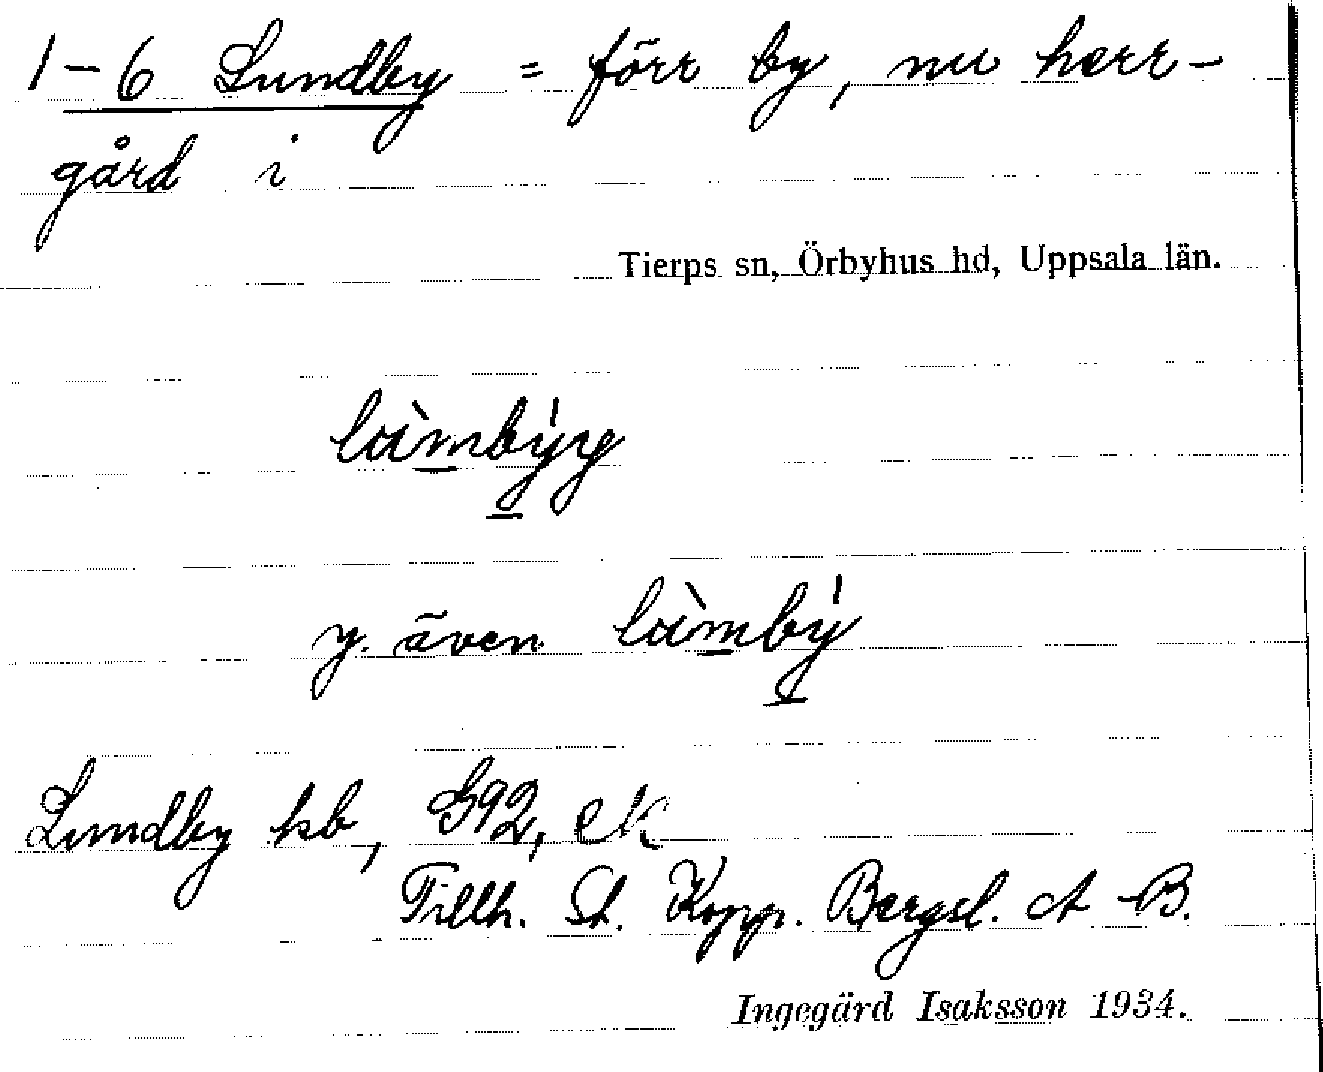 1-6 Lundby = förr by, nu herr-
gård i
Tierps sn, Örbyhus hd, Uppsala län.
làmbýg
y. även làmbý
Lundby hb, G92, ek
Tillh. St. Kopp. Bergsl. A-B.
Ingegärd Isaksson 1934.